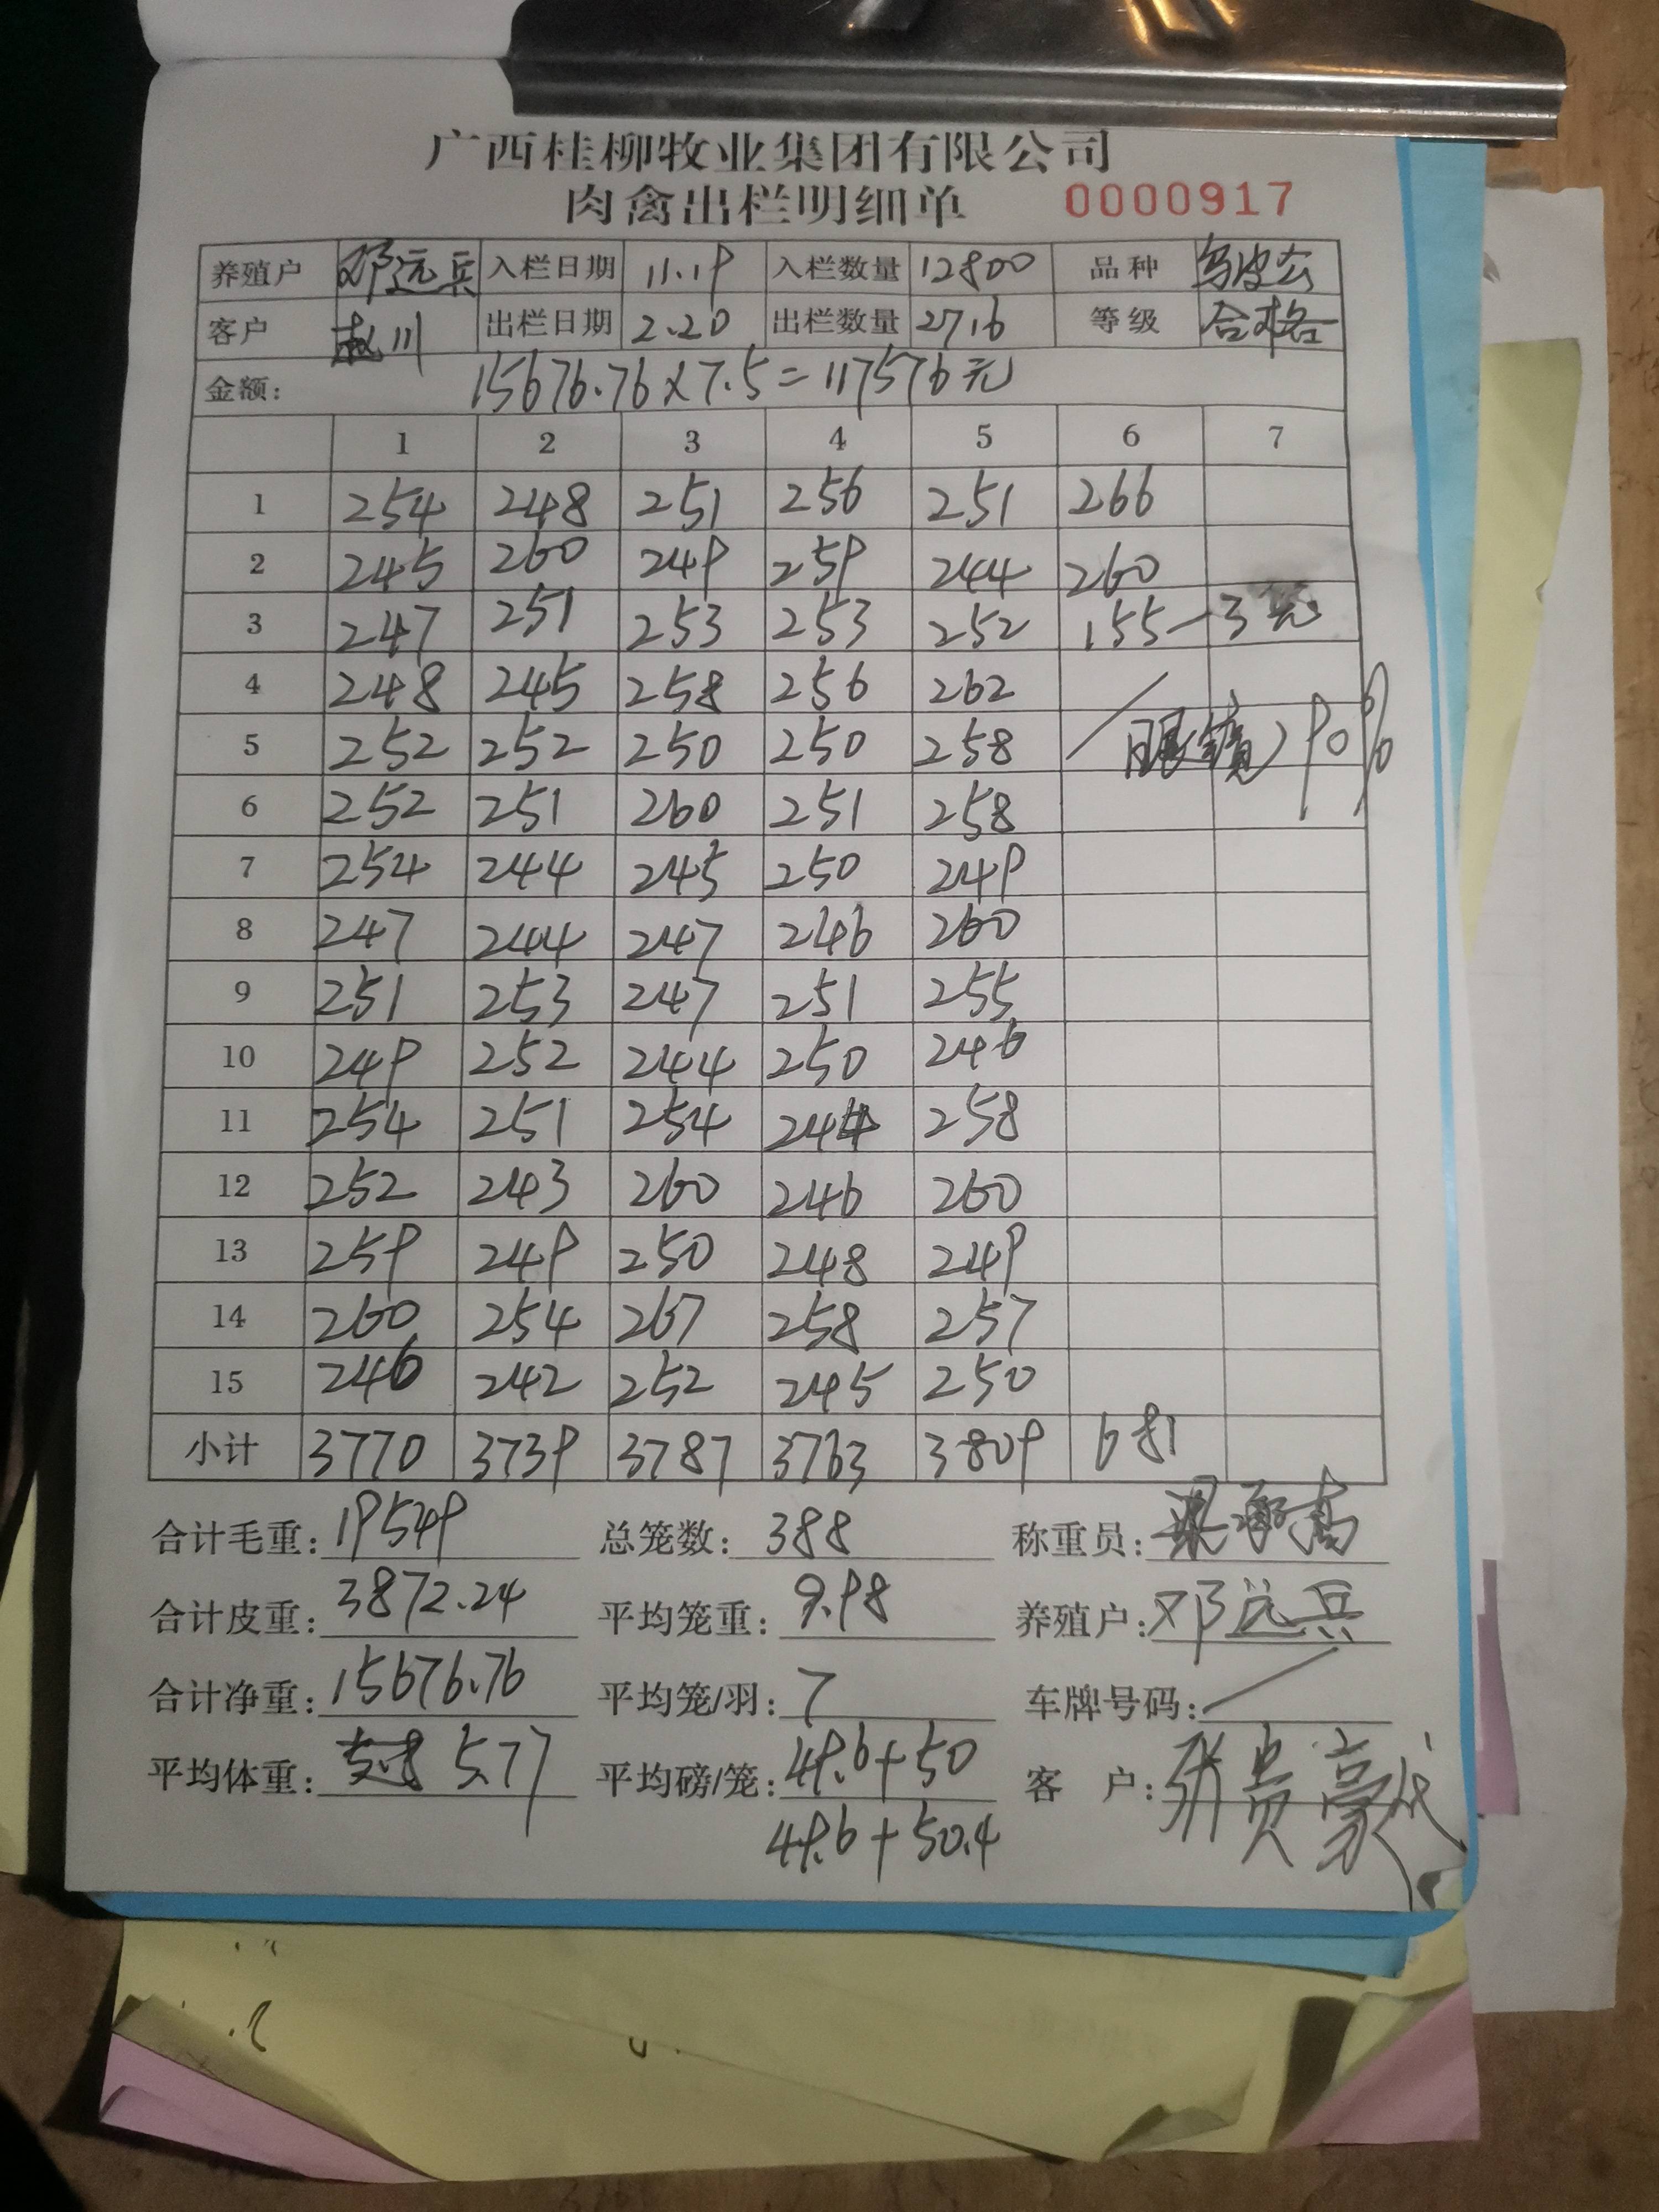 广西桂柳牧业集团有限公司
肉禽出栏明细单 0000917
养殖户 邓远兵 入栏日期 11.19 入栏数量 12800 品种 乌皮公
客户 赵川 出栏日期 2.20 出栏数量 2716 等级 合格
金额: 15676.76×7.5=117576元
1 2 3 4 5 6 7
1 254 248 251 256 251 266
2 245 260 249 259 244 260
3 247 251 253 253 252 155-3笼
4 248 245 258 256 262
5 252 252 250 250 258 眼镜 90%
6 252 251 260 251 258
7 254 244 245 250 249
8 247 244 247 246 260
9 251 253 247 251 255
10 249 252 244 250 246
11 254 251 254 244 258
12 252 243 260 246 260
13 259 249 250 248 249
14 260 254 267 258 257
15 246 242 252 245 250
小计 3770 3739 3787 3763 3809 681
合计毛重: 19549 总笼数: 388 称重员:
合计皮重: 3872.24 平均笼重: 9.98 养殖户: 邓远兵
合计净重: 15676.76 平均笼/羽: 7 车牌号码:
平均体重: 5.77 平均磅/笼: 49.6+50 客 户: 张贵豪代
49.6+50.4